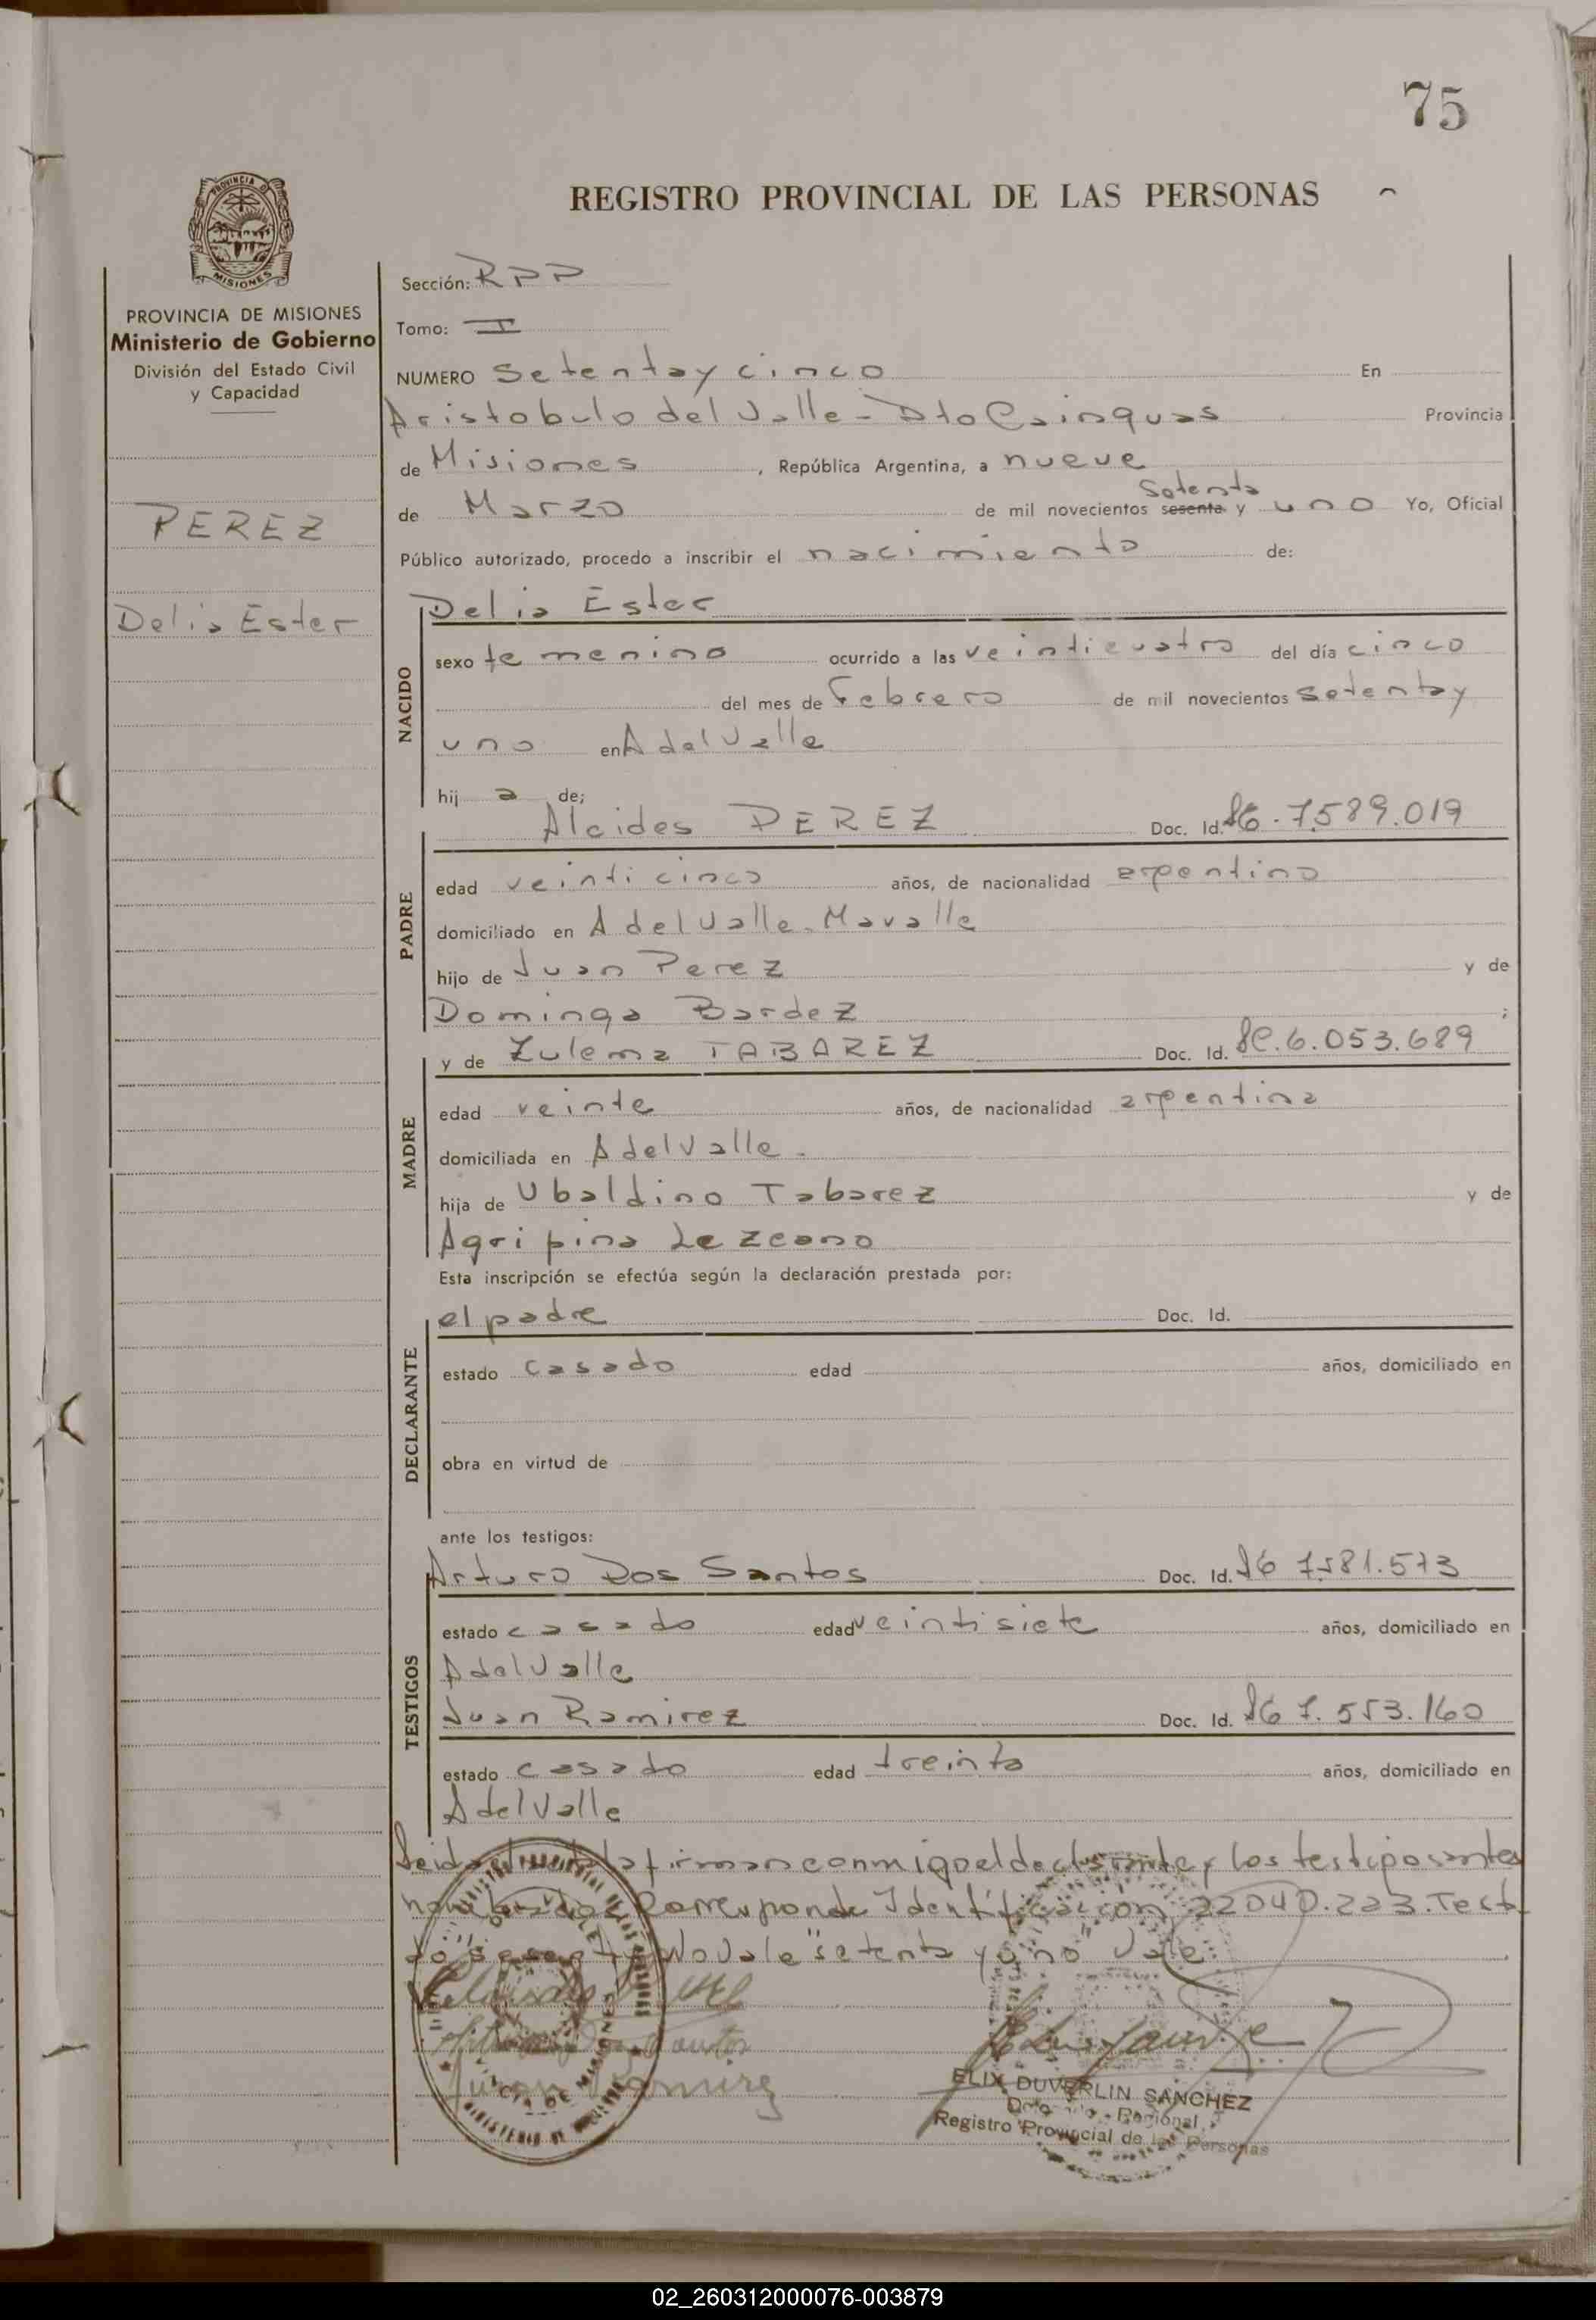 75
REGISTRO PROVINCIAL DE LAS PERSONAS
PROVINCIA DE MISIONES
Ministerio de Gobierno
División del Estado Civil
y Capacidad
PEREZ
Delia Ester
Sección: RPP
Tomo: I
NUMERO Setenta y cinco En
Aristobulo del Valle - Dto Cainguas Provincia
de Misiones, República Argentina, a nueve
Setenta
de Marzo de mil novecientos sesenta y uno Yo, Oficial
Público autorizado, procedo a inscribir el nacimiento de:
NACIDO
Delia Ester
sexo femenino ocurrido a las veinticuatro del día cinco
del mes de Febrero de mil novecientos setenta y
uno en A del Valle
hij a de;
PADRE
Alcides PEREZ Doc. Id. 7.589.019
edad veinticinco años, de nacionalidad argentino
domiciliado en A del Valle. Mavalle
hijo de Juan Perez y de
Dominga Bardez ;
MADRE
y de Zulema TABAREZ Doc. Id. LC. 6.053.689
edad veinte años, de nacionalidad argentina
domiciliada en A del Valle.
hija de Ubaldino Tabarez y de
Agripina Lezcano
Esta inscripción se efectúa según la declaración prestada por:
DECLARANTE
el padre Doc. Id.
estado casado edad años, domiciliado en
obra en virtud de
ante los testigos:
TESTIGOS
Arturo Dos Santos Doc. Id. 7.581.573
estado casado edad veintisiete años, domiciliado en
A del Valle
Juan Ramirez Doc. Id. 7.553.160
estado casado edad treinta años, domiciliado en
A del Valle
Leida el acta la firman conmigo el declarante y los testigos antes
nombrados Corresponde Identificación 22040.223. Test
do sesenta No Vale "setenta y uno" Vale
Juan Ramirez
ELIX DUVERLIN SANCHEZ
Registro Provincial de las Personas
02_260312000076-003879